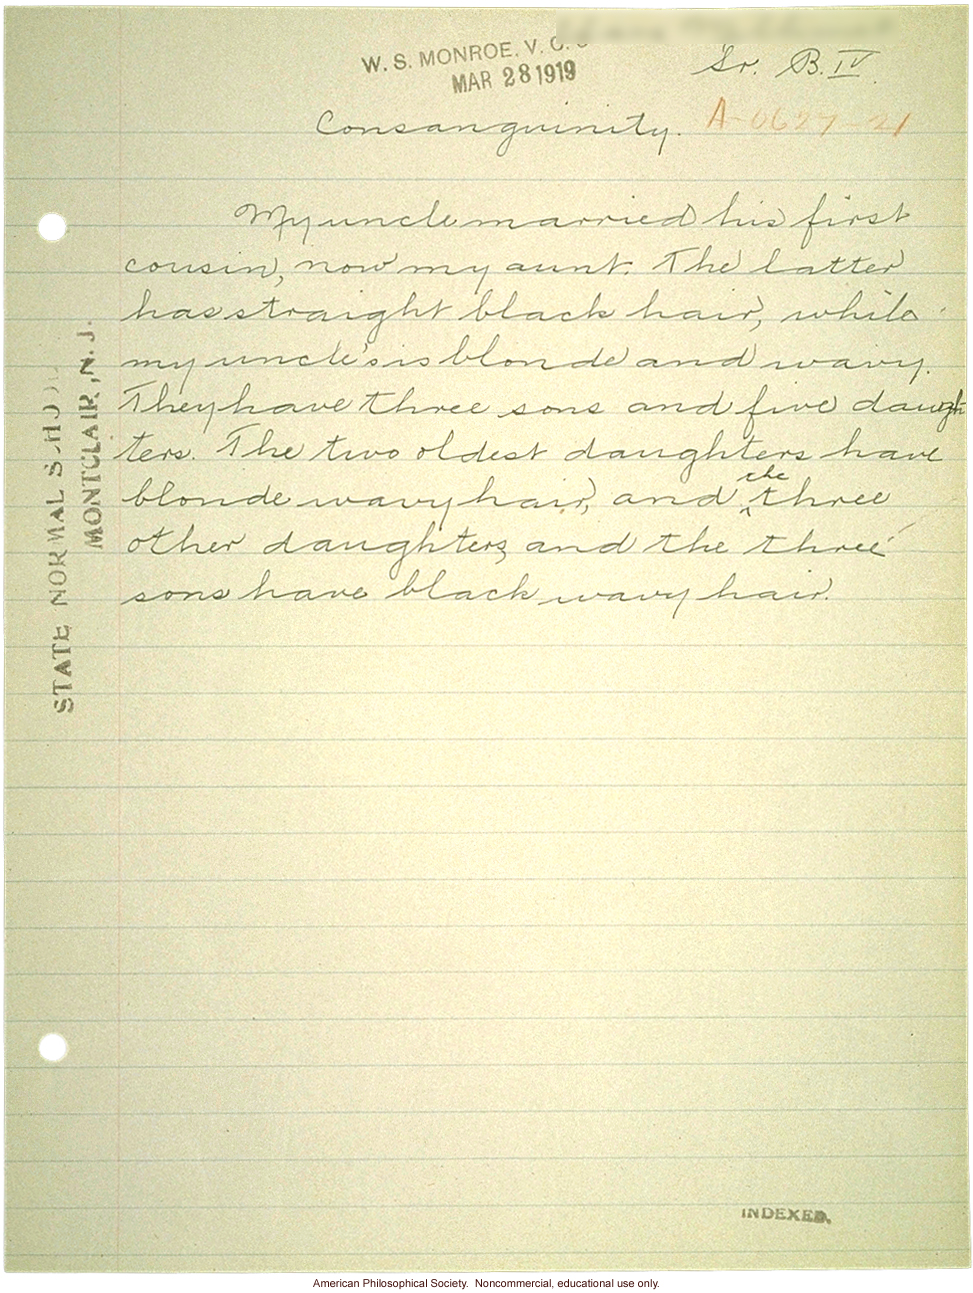 W. S. MONROE. V. C.
MAR 28 1919
Sr. B. IV.
Consanguinity.
A-0627-21
My uncle married his first
cousin, now my aunt. The latter
has straight black hair, while
my uncle's is blonde and wavy.
They have three sons and five daugh
ters. The two oldest daughters have
blonde wavy hair, and the three
other daughters and the three
sons have black wavy hair.
STATE NORMAL
MONTCLAIR, N. J.
INDEXED.
American Philosophical Society. Noncommercial, educational use only.